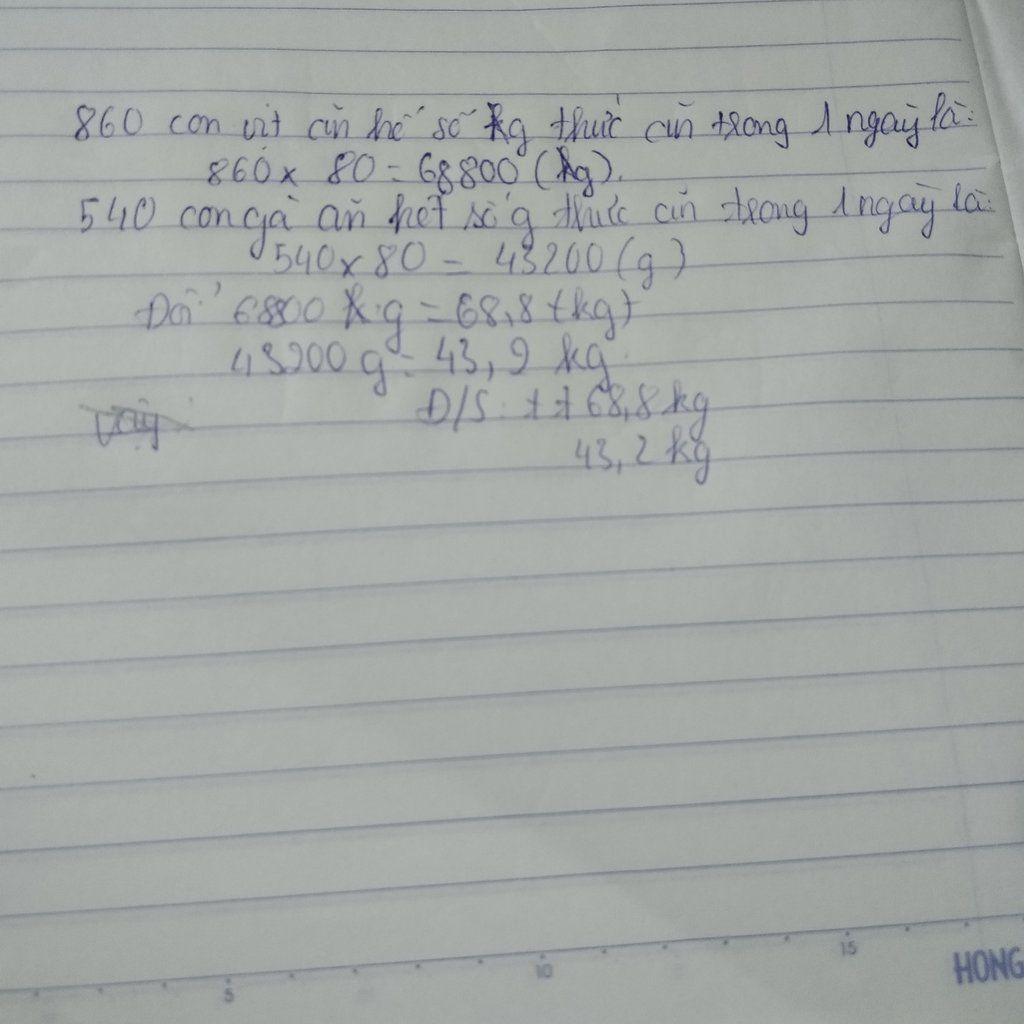 860 con vit ăn hế số kg thức ăn trong 1 ngày là:
860 x 80 = 68800 (kg).
540 con gà ăn hết số g thức ăn trong 1 ngày là:
540 x 80 = 43200 (g)
Đổi: 68800 kg = 68,8 (kg)
43200 g = 43,2 kg.
Vậy
Đ/S: 68,8 kg
43,2 kg
5 10 15
HONG